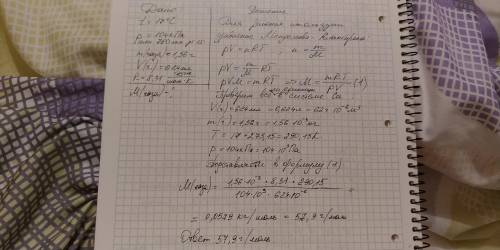 Дано
t = 17°C
p = 104 кПа
m(газа) = 1,56г
V(г) = 0,624л
R = 8,31
M(газа) - ?
Решение
Для решения используем
уравнение Менделеева-Клапейрона
pV = nRT , n = m/M
pV = m/M RT
pVM = mRT => M = mRT/pV (1)
Переводим все величины в систему Си
V(г) = 624мл = 0,624л = 624·10⁻⁶м³
m(г) = 1,56г = 1,56·10⁻³кг
T = 17 + 273,15 = 290,15K
p = 104кПа = 104·10³Па
подставляем в формулу (1)
M(газа) = 1,56·10⁻³ * 8,31 * 290,15 / 104·10³ · 624·10⁻⁶ =
= 0,0579 кг/моль = 57,9 г/моль
Ответ 57,9г/моль